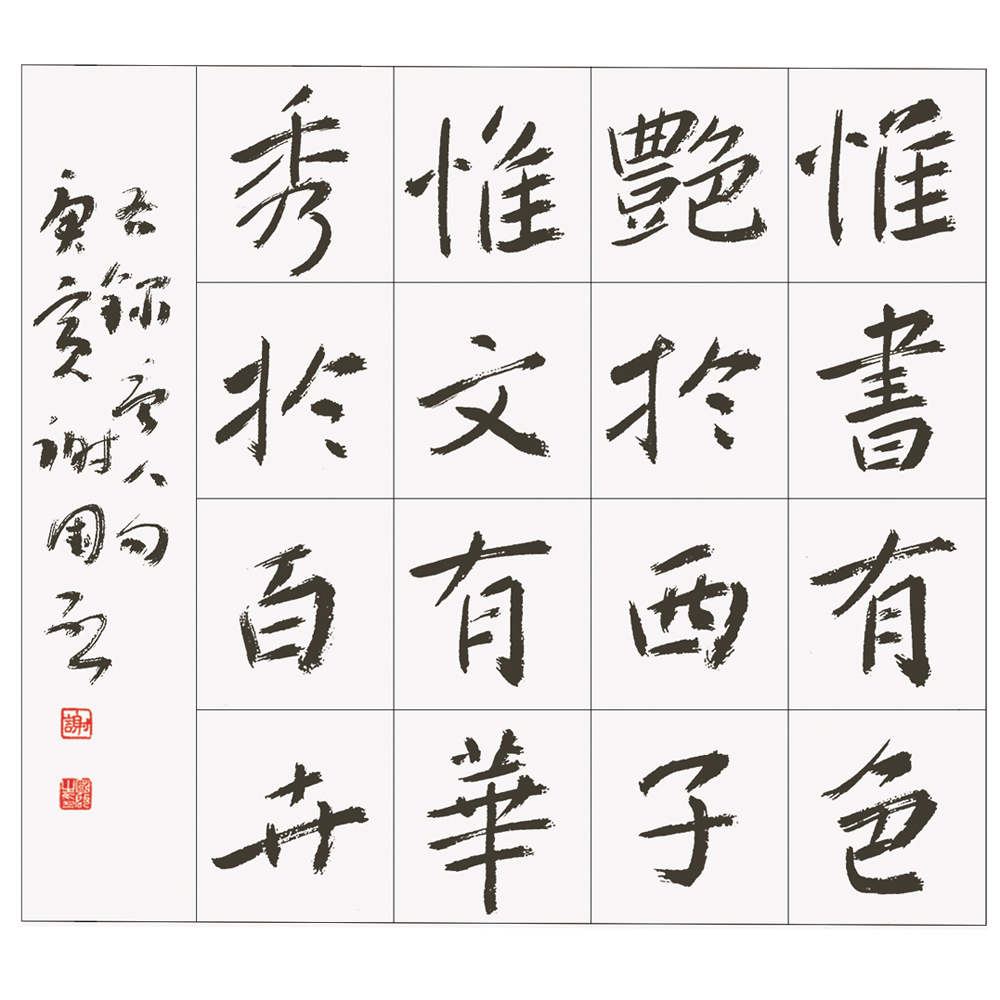 惟書有色
艷於西子
惟文有華
秀於百卉
古鉨文人句
庚寅謝國
謝